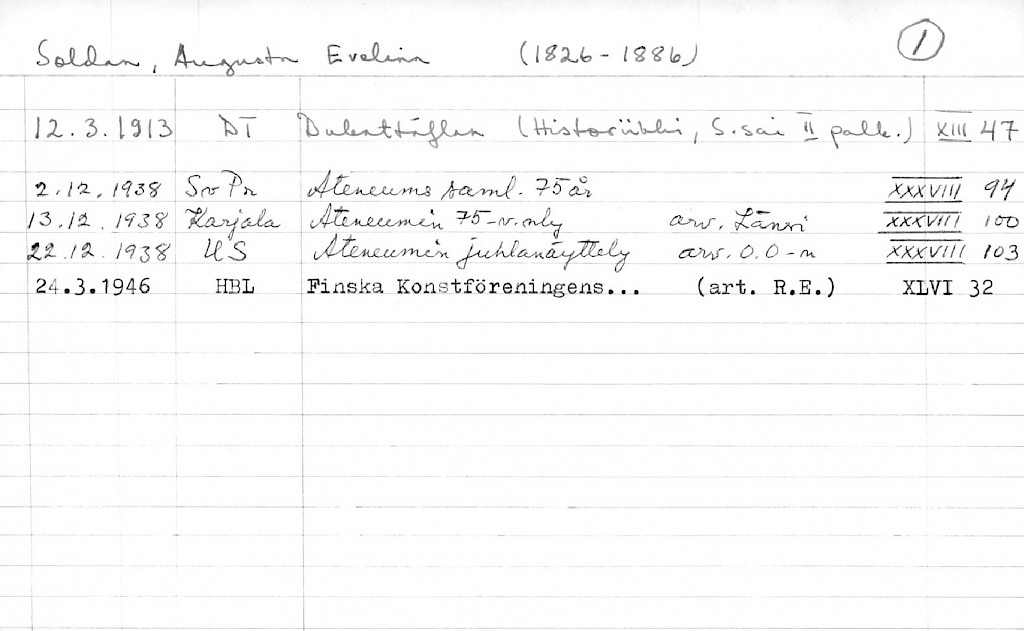 Soldan, Augusta Evelina (1826-1886) 1
12.3.1913 DT Dukattäflan (Historiikki, S.sai II palk.) XIII 47
2.12.1938 Sv Pr Ateneums saml. 75 år XXXVIII 94
13.12.1938 Karjala Ateneumin 75-v.nly arv. Länsi XXXVIII 100
22.12.1938 US Ateneumin juhlanäyttely arv. O.O-n XXXVIII 103
24.3.1946 HBL Finska Konstföreningens... (art. R.E.) XLVI 32